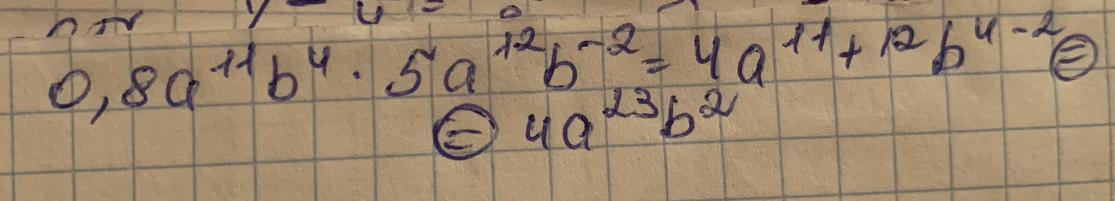 0,8a¹¹b⁴ · 5a¹²b⁻² = 4a¹¹⁺¹²b⁴⁻² ⊜
⊜ 4a²³b²